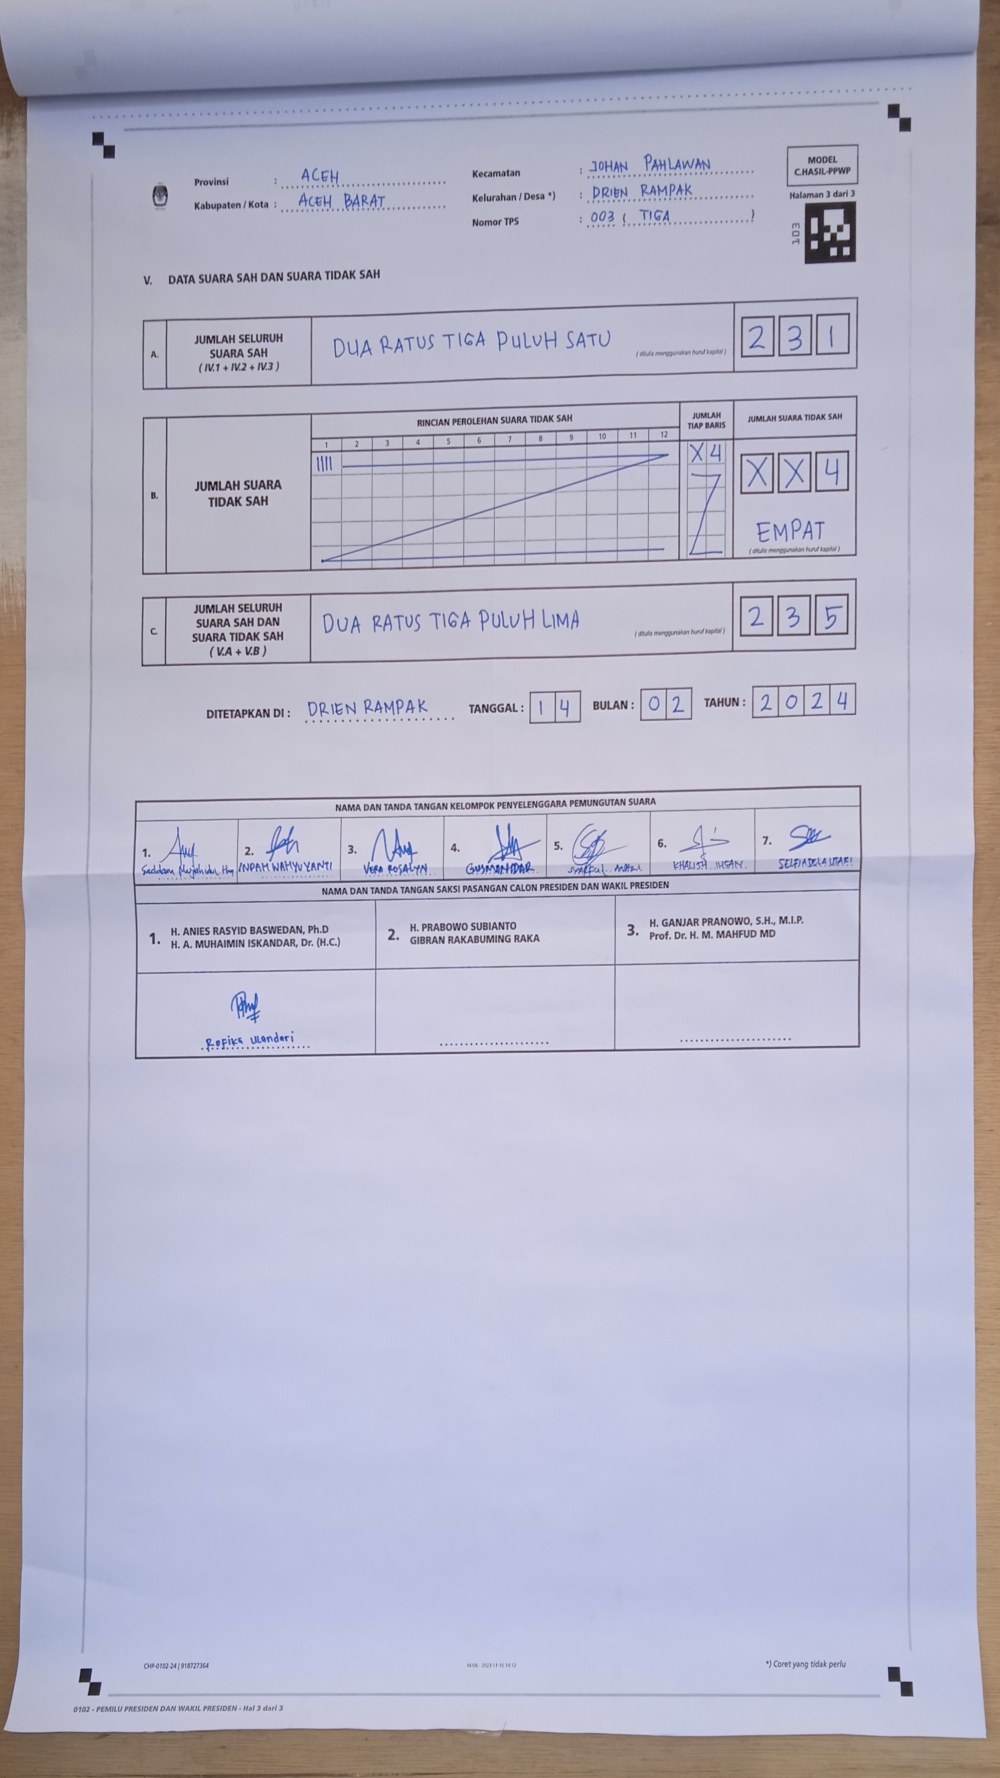 Provinsi : ACEH
Kabupaten / Kota : ACEH BARAT
Kecamatan : JOHAN PAHLAWAN
Kelurahan / Desa *) : DRIEN RAMPAK
Nomor TPS : 003 ( TIGA )
MODEL
C.HASIL-PPWP
Halaman 3 dari 3
103
V. DATA SUARA SAH DAN SUARA TIDAK SAH
A.
JUMLAH SELURUH
SUARA SAH
( IV.1 + IV.2 + IV.3 )
DUA RATUS TIGA PULUH SATU
( ditulis menggunakan huruf kapital )
2 3 1
B.
JUMLAH SUARA
TIDAK SAH
RINCIAN PEROLEHAN SUARA TIDAK SAH
1 2 3 4 5 6 7 8 9 10 11 12
||||
JUMLAH
TIAP BARIS
X 4
JUMLAH SUARA TIDAK SAH
X X 4
EMPAT
( ditulis menggunakan huruf kapital )
C.
JUMLAH SELURUH
SUARA SAH DAN
SUARA TIDAK SAH
( V.A + V.B )
DUA RATUS TIGA PULUH LIMA
( ditulis menggunakan huruf kapital )
2 3 5
DITETAPKAN DI : DRIEN RAMPAK TANGGAL : 1 4 BULAN : 0 2 TAHUN : 2 0 2 4
NAMA DAN TANDA TANGAN KELOMPOK PENYELENGGARA PEMUNGUTAN SUARA
1. 2. 3. 4. 5. 6. 7.
VERA ROSALYN GUSMANIDAR KHALISH IHSAN
NAMA DAN TANDA TANGAN SAKSI PASANGAN CALON PRESIDEN DAN WAKIL PRESIDEN
1. H. ANIES RASYID BASWEDAN, Ph.D
H. A. MUHAIMIN ISKANDAR, Dr. (H.C.)
2. H. PRABOWO SUBIANTO
GIBRAN RAKABUMING RAKA
3. H. GANJAR PRANOWO, S.H., M.I.P.
Prof. Dr. H. M. MAHFUD MD
Refika Ulandari
CHP-0102-24 | 918727364
*) Coret yang tidak perlu
0102 - PEMILU PRESIDEN DAN WAKIL PRESIDEN - Hal 3 dari 3